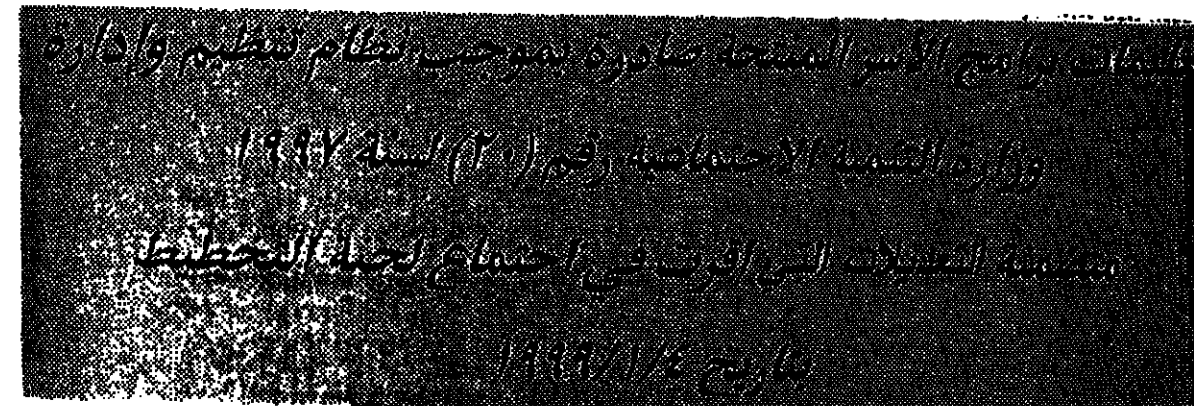 تعليمات برامج الأسر المنتجة صادرة بموجب نظام تنظيم وإدارة
وزارة التنمية الاجتماعية رقم (٢٠) لسنة ١٩٩٧
متضمنة التعديلات التي اقرت في اجتماع لجنة التخطيط
بتاريخ ١٩٩٩/١/٤